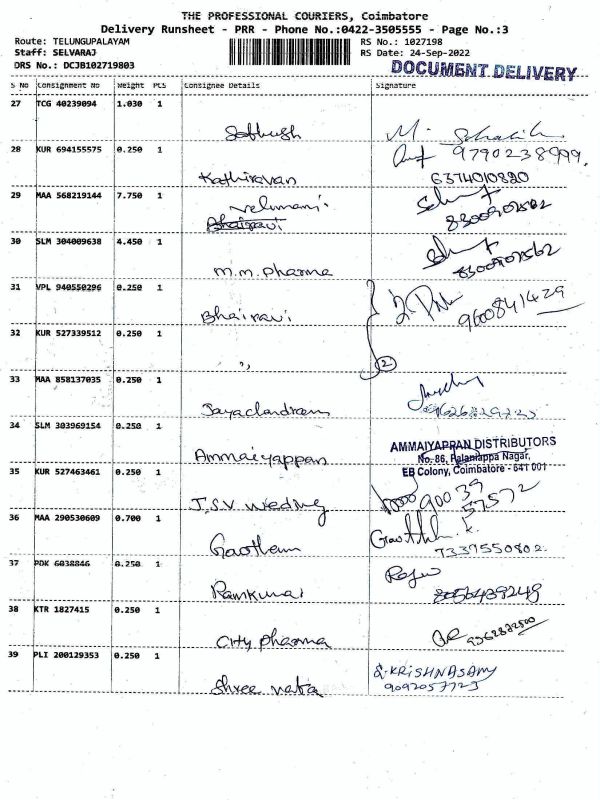 THE PROFESSIONAL COURIERS, Coimbatore
Delivery Runsheet - PRR - Phone No.:0422-3505555 - Page No.:3
Route: TELUNGUPALAYAM RS No.: 1027198
Staff: SELVARAJ RS Date: 24-Sep-2022
DRS No.: DCJB102719803 DOCUMENT DELIVERY
S No Consignment No Weight PCS Consignee Details Signature
27 TCG 40239094 1.030 1
M.
28 KUR 694155575 0.250 1 9790238999.
Kathiravan 6374010820
29 MAA 568219144 7.750 1 Velumani.
Bhairavi
30 SLM 304009638 4.450 1
M.M. Pharma
31 VPL 940550296 0.250 1
Bhairavi 9600841429
32 KUR 527339512 0.250 1
" 2
33 MAA 858137035 0.250 1
Jayachandran
34 SLM 303969154 0.250 1
AMMAIYAPPAN DISTRIBUTORS
Ammaiyappan No. 86, Palaniappa Nagar,
35 KUR 527463461 0.250 1 EB Colony, Coimbatore - 641 001
J.S.V Weding 90039 57572
36 MAA 290530609 0.700 1
Gowtham 7337550802.
37 PDK 6038846 0.250 1
Ramkumar
38 KTR 1827415 0.250 1
City pharma
39 PLI 200129353 0.250 1 S-KRISHNASAMY
Shree 9092057723